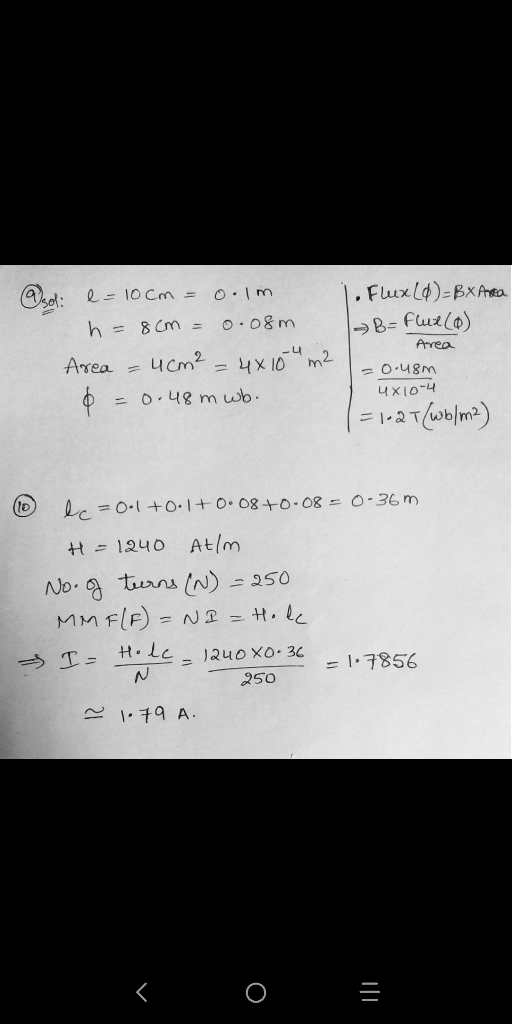 ⑨ sol: l = 10cm = 0.1m
h = 8cm = 0.08m
Area = 4cm² = 4×10⁻⁴ m²
ϕ = 0.48 m wb.
. Flux(ϕ)=B×Area
⇒B= Flux(ϕ)/Area
= 0.48m/4×10⁻⁴
= 1.2T(wb/m²)
⑩ lc = 0.1+0.1+0.08+0.08 = 0.36m
H = 1240 At/m
No. of turns (N) = 250
MMF(F) = NI = H.lc
⇒ I = H.lc/N = 1240×0.36/250 = 1.7856
≃ 1.79 A.